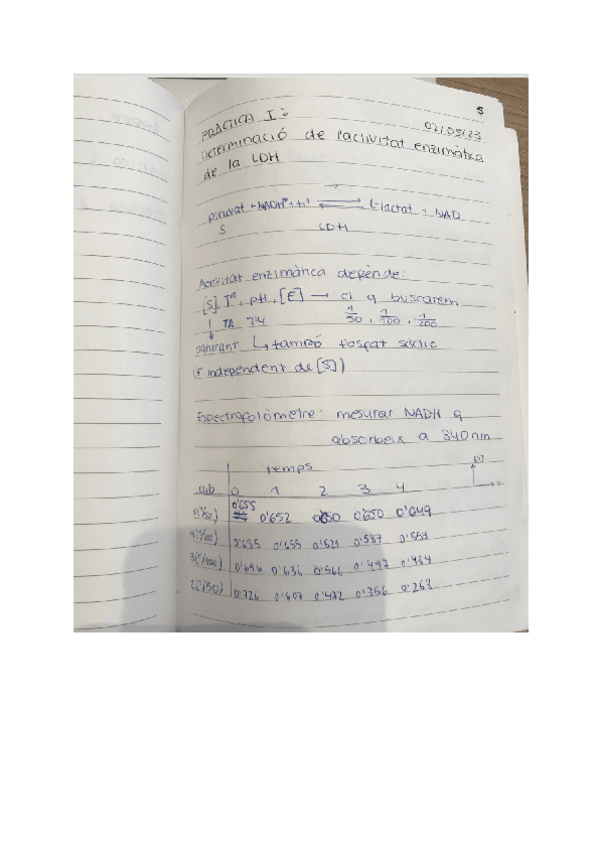 5
PRÀCTICA I:
02/05/23
Determinació de l'activitat enzimàtica
de la LDH
piruvat + NADH + H⁺ ⇌ L-lactat + NAD
S LDH
Activitat enzimàtica depèn de:
[S], Tª, pH, [E] → el q buscarem
↓ TA 7'4 1/50, 1/100, 1/200
saturant ↳ tampó fosfat sòdic
(r independent de [S])
Espectrofotòmetre: mesurar NADH q
absorbeix a 340 nm
temps
cub 0 1 2 3 4
0'655
0'652 0'650 0'650 0'649
0'655 0'621 0'587 0'553
0'636 0'566 0'497 0'434
2(1/50) 0'726 0'607 0'472 0'356 0'268